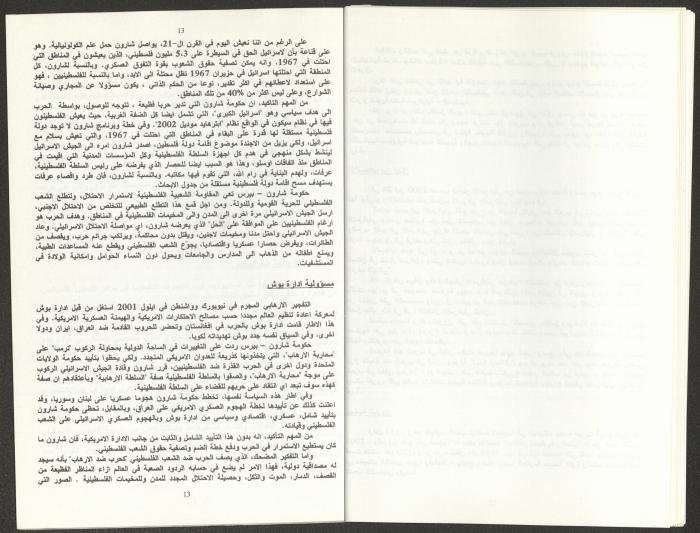 13
على الرغم من اننا نعيش اليوم في القرن ال-21، يواصل شارون حمل علم الكولونيالية. وهو
على قناعة بأن لاسرائيل الحق في السيطرة على 5،3 مليون فلسطيني، الذين يعيشون في المناطق التي
احتلت في 1967، وانه يمكن تصفية حقوق الشعوب بقوة التفوق العسكري. وبالنسبة لشارون، كل
المنطقة التي احتلتها اسرائيل في حزيران 1967 تظل محتلة الى الابد، واما بالنسبة للفلسطينيين ، فهو
على استعداد لاعطائهم في اكثر تقدير، نوعا من الحكم الذاتي ، يكون مسؤولا عن المجاري وصيانة
الشوارع، وعلى ليس اكثر من 40% من تلك المناطق.
من المهم التأكيد، ان حكومة شارون التي تدير حربا فظيعة ، تتوجه للوصول، بواسطة الحرب
الى هدف سياسي وهو "اسرائيل الكبرى"، التي تشمل ايضا كل الضفة الغربية، حيث يعيش الفلسطينيون
فيها في نظام سيكون في الواقع نظام "ابارتهايد موديل 2002". وفي خطة وبرنامج شارون لا توجد دولة
فلسطينية مستقلة لها قدرة على البقاء في المناطق التي احتلت في 1967، والتي تعيش بسلام مع
اسرائيل، ولكي يزيل من الاجندة موضوع اقامة دولة فلسطين، اصدر شارون امره الى الجيش الاسرائيلي
لينشط بشكل منهجي في هدم كل اجهزة السلطة الفلسطينية وكل المؤسسات المدنية التي اقيمت في
المناطق منذ اتفاقات اوسلو، وهذا هو السبب ايضا للحصار الذي يفرضه على رئيس السلطة الفلسطينية،
عرفات، ولهدم البناية في رام الله، التي تقوم فيها مكاتبه. وبالنسبة لشارون، فان طرد واقصاء عرفات
يستهدف مسح اقامة دولة فلسطينية مستقلة من جدول الابحاث.
حكومة شارون – بيرس تعي المقاومة الشعبية الفلسطينية لاستمرار الاحتلال، ولتطلع الشعب
الفلسطيني للحرية القومية وللدولة. ومن اجل قمع هذا التطلع الطبيعي للتخلص من الاحتلال الاجنبي،
ارسل الجيش الاسرائيلي مرة اخرى الى المدن والى المخيمات الفلسطينية في المناطق. وهدف الحرب هو
ارغام الفلسطينيين على الموافقة على "الحل" الذي يعرضه شارون، اي مواصلة الاحتلال الاسرائيلي. وعاد
الجيش الاسرائيلي واحتل مدنا ومخيمات لاجئين، ويقتل بدون محاكمة، ويرتكب جرائم حرب، ويقصف من
الطائرات، ويفرض حصارا عسكريا واقتصاديا، يجوّع الشعب الفلسطيني ويقطع عنه المساعدات الطبية،
ويمنع اطفاله من الذهاب الى المدارس والجامعات ويحول دون النساء الحوامل وامكانية الولادة في
المستشفيات.
مسؤولية ادارة بوش
التفجير الارهابي المجرم في نيويورك وواشنطن في ايلول 2001 استغل من قبل ادارة بوش
لمعركة اعادة تنظيم العالم مجددا حسب مصالح الاحتكارات الامريكية والهيمنة العسكرية الامريكية. وفي
هذا الاطار قامت ادارة بوش بالحرب في افغانستان وتحضر للحروب القادمة ضد العراق، ايران ودولا
اخرى. وفي السياق نفسه جدد بوش تهديداته لكوبا.
حكومة شارون – بيرس ردت على التغييرات في الساحة الدولية بمحاولة الركوب "ترمب" على
"محاربة الارهاب"، التي يتخذونها كذريعة للعدوان الامريكي المتجدد. ولكي يحظوا بتأييد حكومة الولايات
المتحدة ودول اخرى في الحرب القذرة ضد الفلسطينيين، قرر شارون وقادة الجيش الاسرائيلي الركوب
على موجة "محاربة الارهاب"، والصقوا بالسلطة الفلسطينية صفة "السلطة الارهابية" وبأعتقادهم ان صفة
كهذه سوف تبعد اي انتقاد على حربهم للقضاء على السلطة الفلسطينية.
وفي اطار هذه السياسة نفسها، تخطط حكومة شارون هجوما عسكريا على لبنان وسوريا، وقد
اعلنت كذلك عن تأييدها لخطة الهجوم العسكري الامريكي على العراق، وبالمقابل، تحظى حكومة شارون
بتأييد شامل، عسكري، اقتصادي وسياسي من ادارة بوش وبالهجوم العسكري الاسرائيلي على الشعب
الفلسطيني وقيادته.
من المهم التأكيد، انه بدون هذا التأييد الشامل والثابت من جانب الادارة الامريكية، فان شارون ما
كان يستطيع الاستمرار في الحرب ودفع خطة الضم وتصفية حقوق الشعب الفلسطيني.
واما التفكير المضحك، الذي يصف الحرب ضد الشعب الفلسطيني "كحرب ضد الارهاب" بأنه سيجد
له مصداقية دولية، فهذا الامر لم يضع في حسابه الردود الصعبة في العالم ازاء المناظر الفظيعة من
القصف، الدمار، الموت والثكل، وحصيلة الاحتلال المجدد للمدن وللمخيمات الفلسطينية . الصور التي
13